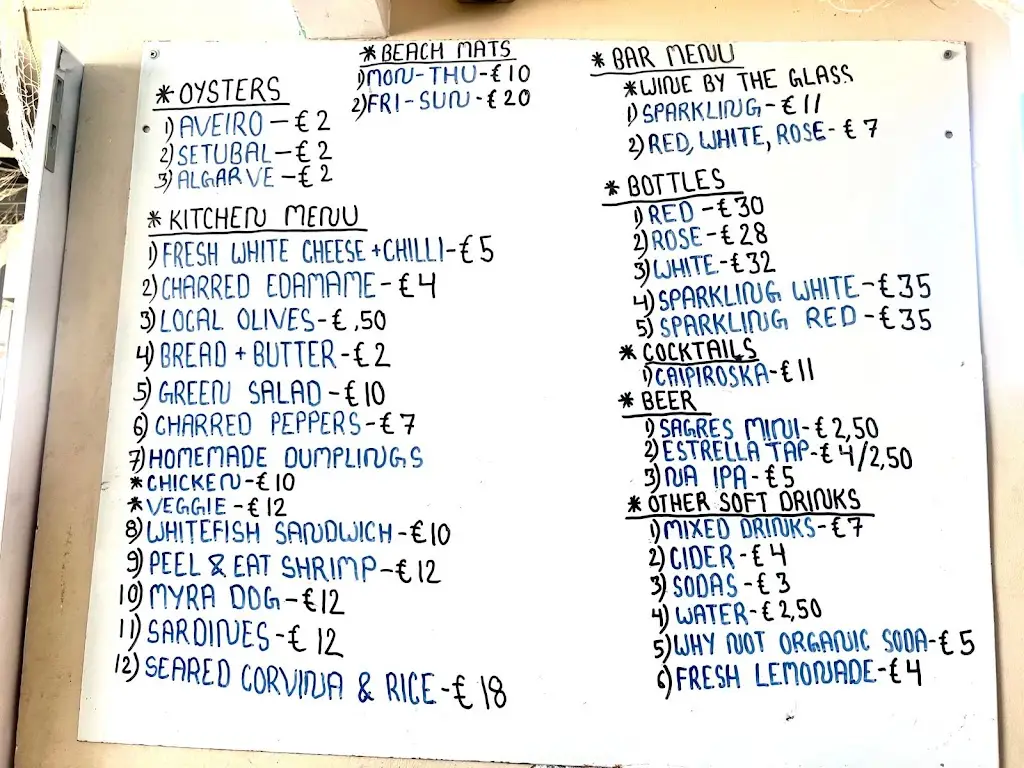 * BEACH MATS
1) MON-THU-€10
2) FRI-SUN-€20
* OYSTERS
1) AVEIRO-€2
2) SETUBAL-€2
3) ALGARVE-€2
* KITCHEN MENU
1) FRESH WHITE CHEESE+CHILLI-€5
2) CHARRED EDAMAME-€4
3) LOCAL OLIVES-€,50
4) BREAD + BUTTER-€2
5) GREEN SALAD-€10
6) CHARRED PEPPERS-€7
7) HOMEMADE DUMPLINGS
* CHICKEN-€10
* VEGGIE-€12
8) WHITEFISH SANDWICH-€10
9) PEEL & EAT SHRIMP-€12
10) MYRA DOG-€12
11) SARDINES-€12
12) SEARED CORVINA & RICE-€18
* BAR MENU
* WINE BY THE GLASS
1) SPARKLING-€11
2) RED, WHITE, ROSE-€7
* BOTTLES
1) RED-€30
2) ROSE-€28
3) WHITE-€32
4) SPARKLING WHITE-€35
5) SPARKLING RED-€35
* COCKTAILS
1) CAIPIROSKA-€11
* BEER
1) SAGRES MINI-€2,50
2) ESTRELLA TAP-€4/2,50
3) NA IPA-€5
* OTHER SOFT DRINKS
1) MIXED DRINKS-€7
2) CIDER-€4
3) SODAS-€3
4) WATER-€2,50
5) WHY NOT ORGANIC SODA-€5
6) FRESH LEMONADE-€4